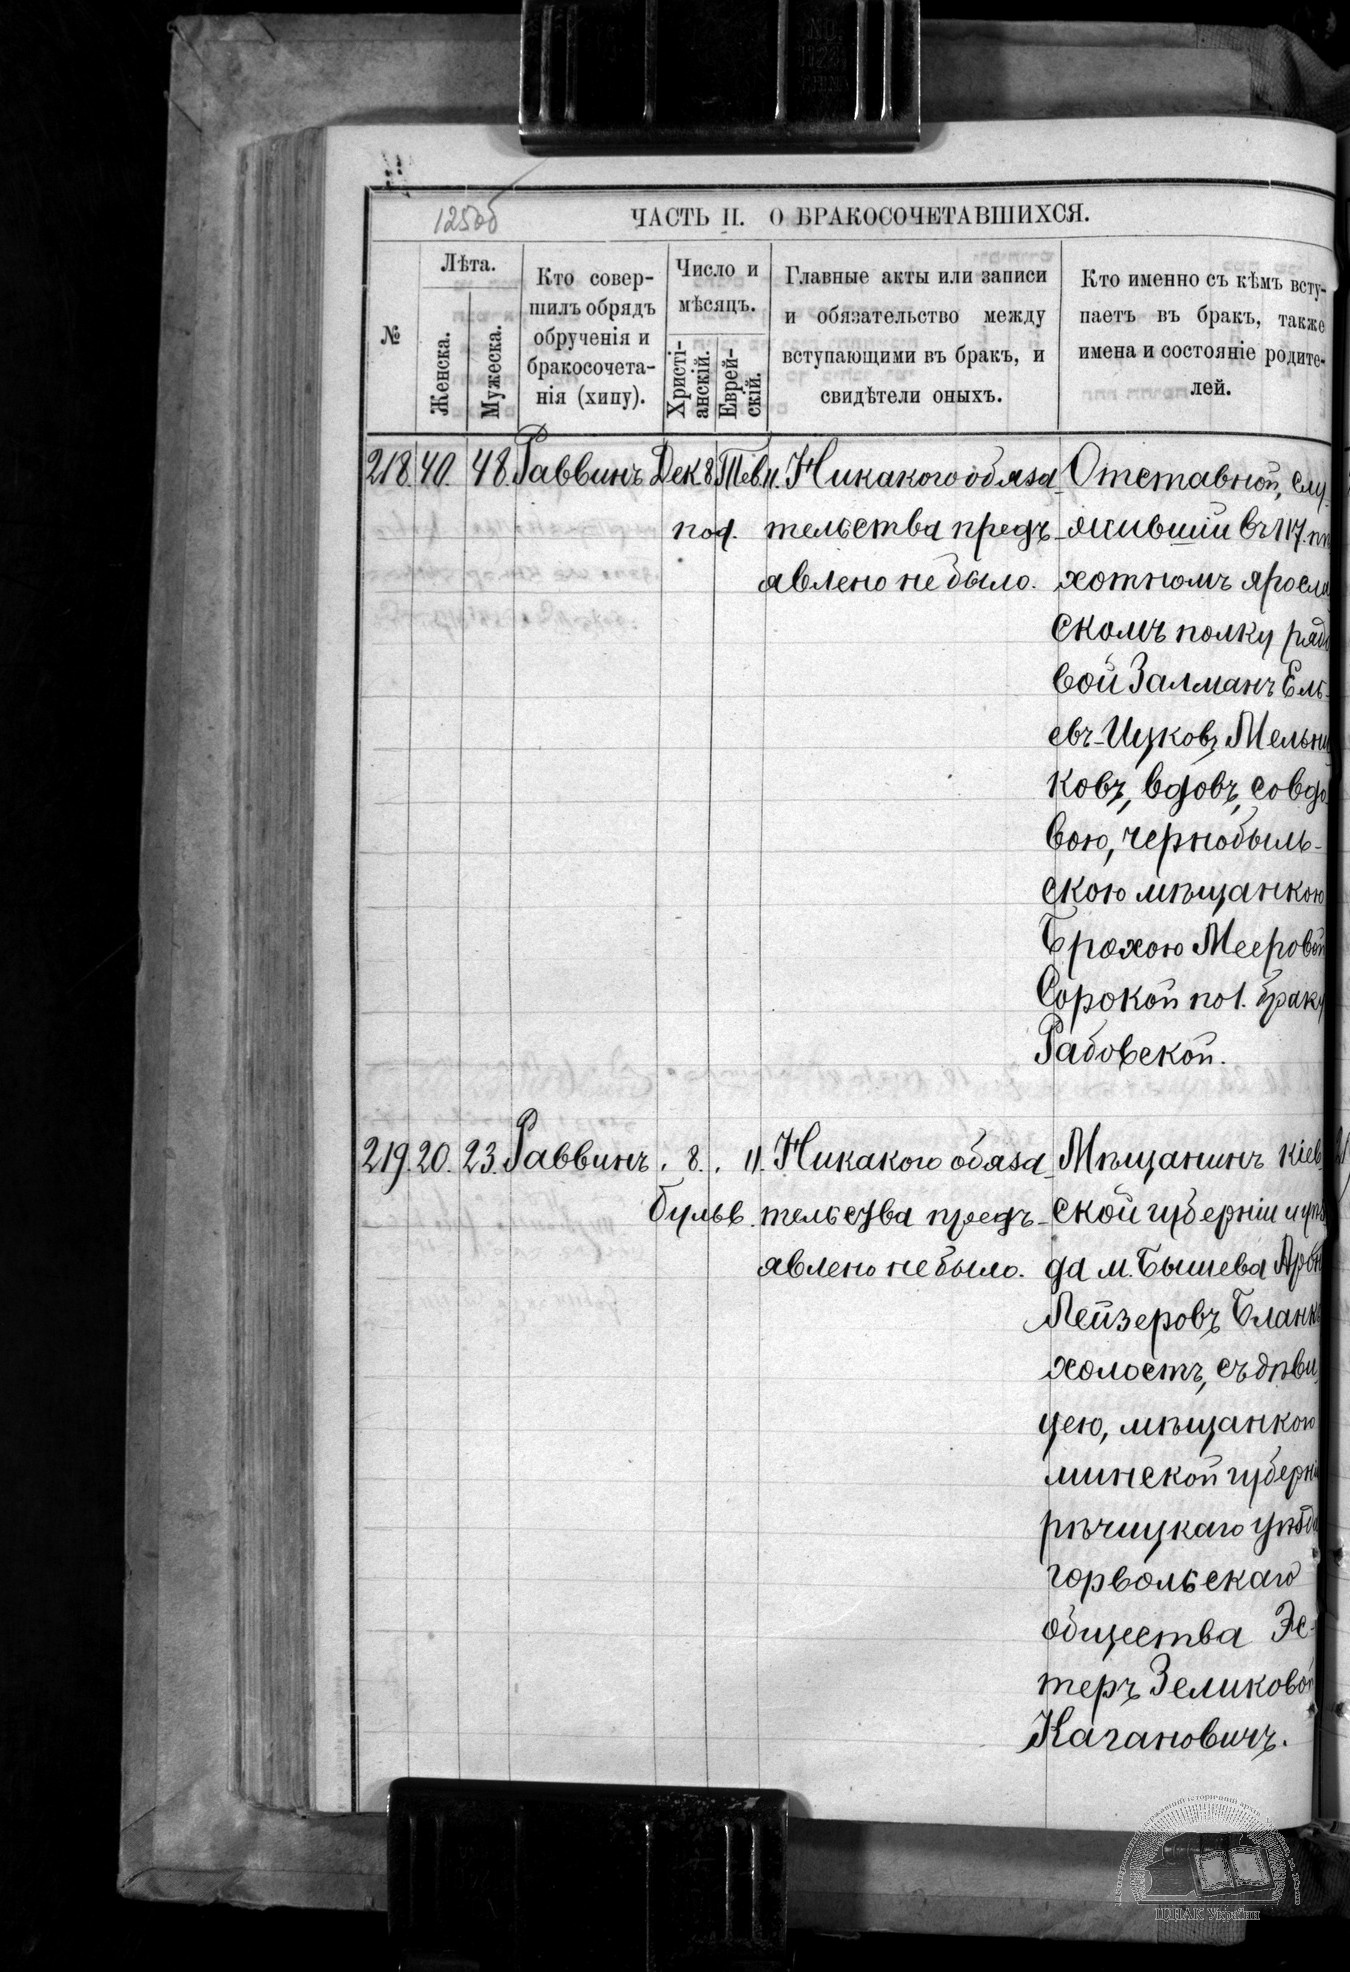 125об
ЧАСТЬ II. О БРАКОСОЧЕТАВШИХСЯ.
№
Лѣта.
Женска.
Мужеска.
Кто совер-
шилъ обрядъ
обрученія и
бракосочета-
нія (хипу).
Число и
мѣсяцъ.
Христі-
анскій.
Еврей-
скій.
Главные акты или записи
и обязательство между
вступающими въ бракъ, и
свидѣтели оныхъ.
Кто именно съ кѣмъ всту-
паетъ въ бракъ, также
имена и состояніе родите-
лей.
218. 40. 48. Раввинъ Дек. 8. Тев. 11.
под.
Никакого обяза-
тельства предъ-
явлено не было.
Отставной, слу-
жившій въ 117. пѣ
хотномъ яросла
скомъ полку рядо
вой Залманъ Ель-
евъ-Ицковъ Мельни
ковъ, вдовъ, со вдо
вою, чернобыль-
скою мѣщанкою
Брохою Мееровой
Сорокой по 1. браку
Рабовской.
219. 20. 23. Раввинъ „ 8. „ 11.
бульв.
Никакого обяза-
тельства предъ-
явлено не было.
Мѣщанинъ кіев
ской губерніи и уѣз
да м. Бышева Аронъ
Лейзеровъ Бланкъ
холостъ, съ дѣви
цею, мѣщанкою
минской губерніи
рѣчицкаго уѣзда
горвольскаго
общества Эс-
теръ Зеликовой
Кагановичъ.
ЦДІАК України